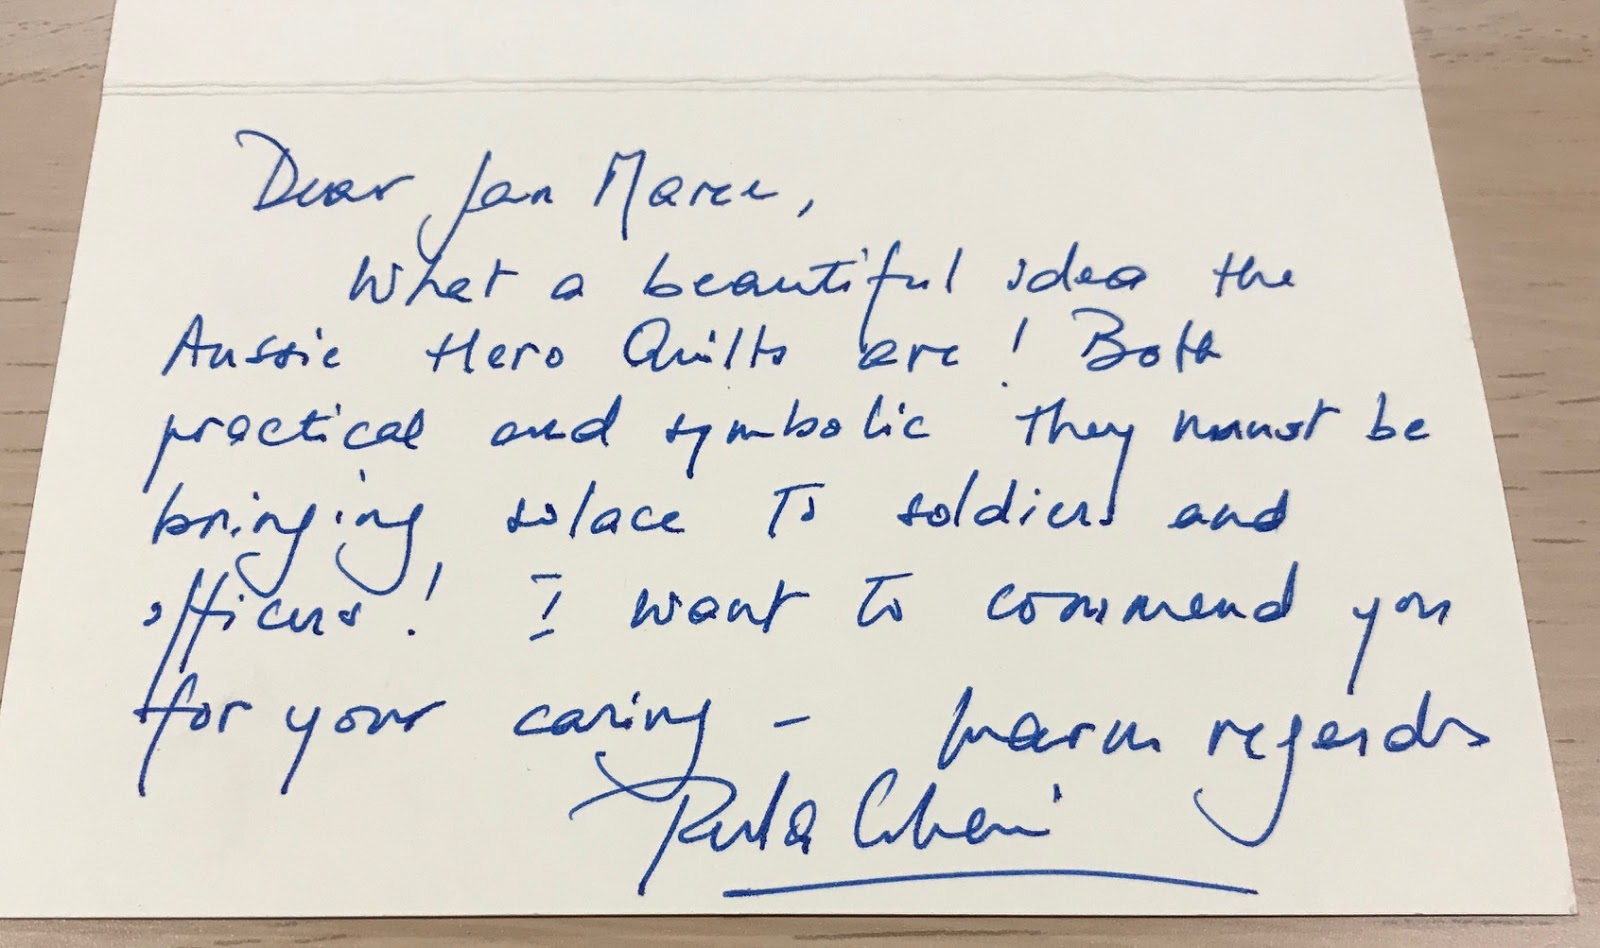 Dear Jan Maree,
What a beautiful idea the
Aussie Hero Quilts are! Both
practical and symbolic they must be
bringing solace to soldiers and
officers! I want to commend you
for your caring - warm regards